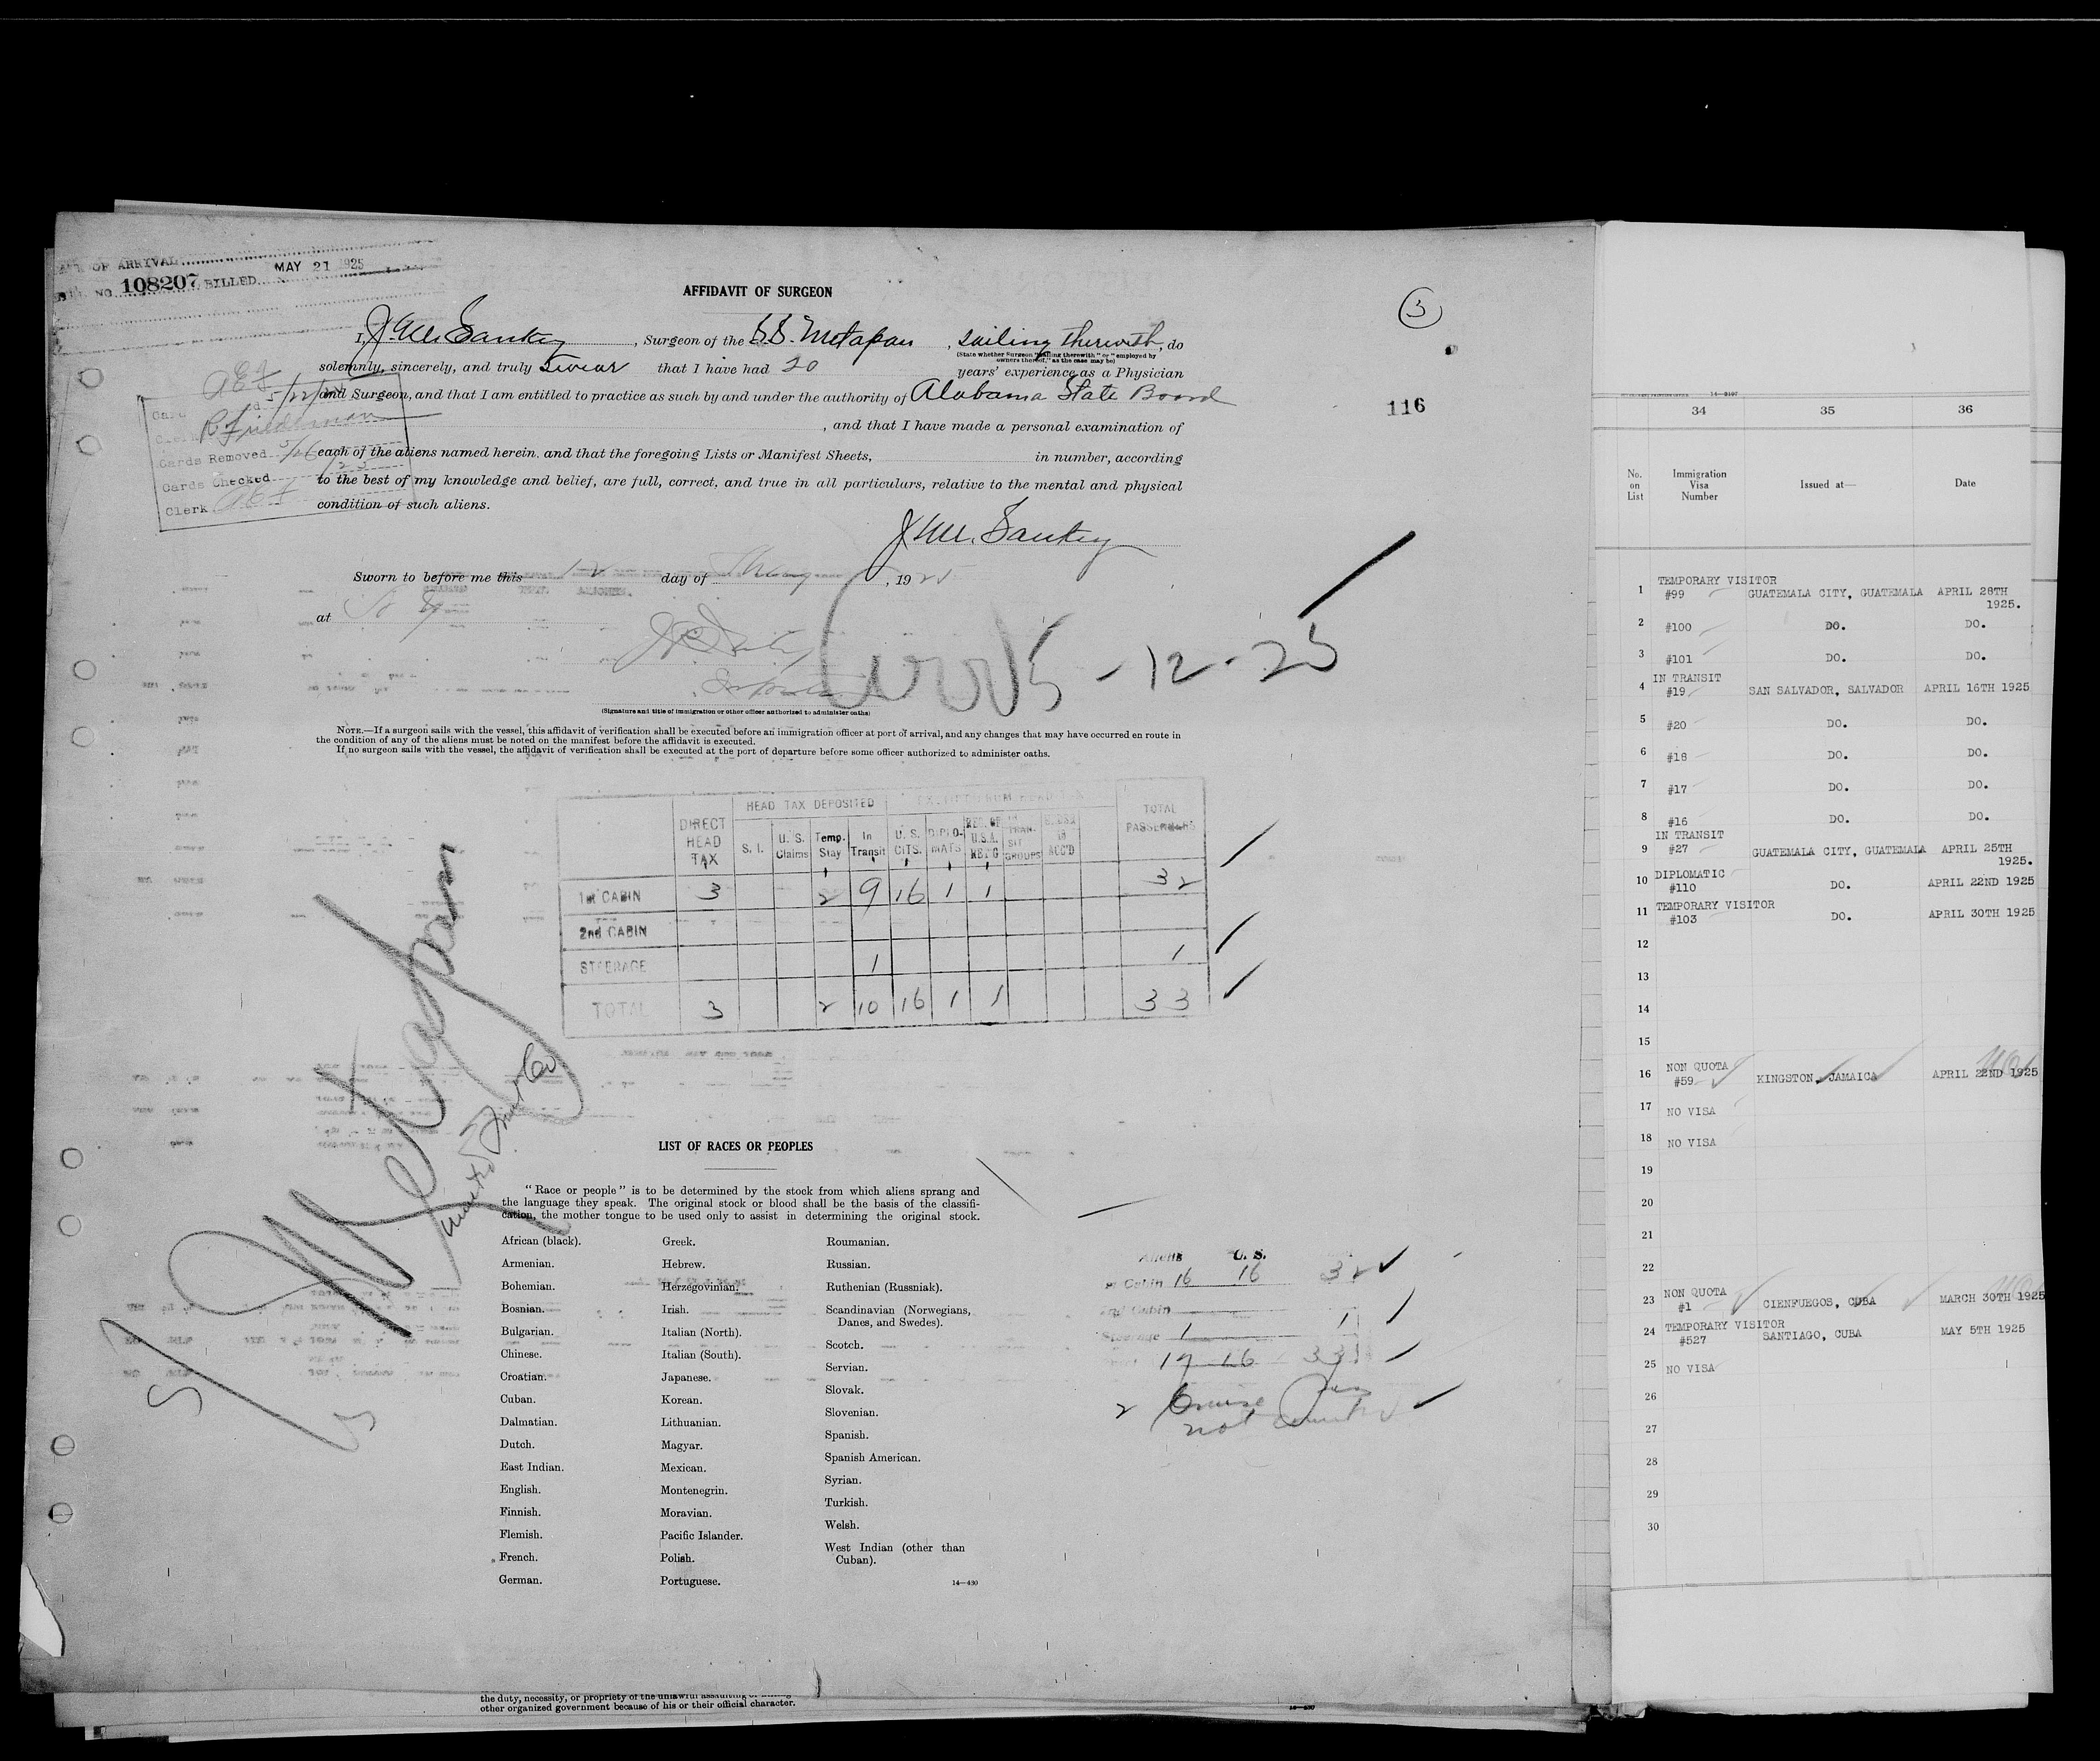 OF ARRIVAL
NO. 108207 BILLED MAY 21 1925
AFFIDAVIT OF SURGEON
3
I, J. M. Sankey, Surgeon of the S.S. Metapan, sailing therewith, do
(State whether Surgeon "sailing therewith" or "employed by
owners thereof," as the case may be)
solemnly, sincerely, and truly Swear that I have had 20 years' experience as a Physician
and Surgeon, and that I am entitled to practice as such by and under the authority of Alabama State Board
, and that I have made a personal examination of
each of the aliens named herein, and that the foregoing Lists or Manifest Sheets, in number, according
to the best of my knowledge and belief, are full, correct, and true in all particulars, relative to the mental and physical
condition of such aliens.
AEF
5/22/25
R Friedman
Cards Removed 5/26
Cards Checked
Clerk AEF
116
J. M. Sankey
Sworn to before me this 12 day of May, 1925
at N Y
5-12-25
(Signature and title of immigration or other officer authorized to administer oaths)
NOTE.—If a surgeon sails with the vessel, this affidavit of verification shall be executed before an immigration officer at port of arrival, and any changes that may have occurred en route in
the condition of any of the aliens must be noted on the manifest before the affidavit is executed.
If no surgeon sails with the vessel, the affidavit of verification shall be executed at the port of departure before some officer authorized to administer oaths.
DIRECT HEAD TAX | HEAD TAX DEPOSITED | EXEMPT FROM HEAD TAX | TOTAL PASSENGERS
S. I. | U. S. Claims | Temp. Stay | In Transit | U. S. CITS. | DIPLO-MATS | RES. OF U.S.A. RET'G | IN TRAN-SIT GROUPS
1st CABIN 3 2 9 16 1 1 32
2nd CABIN
STEERAGE 1 1
TOTAL 3 2 10 16 1 1 33
SS Metapan
United Fruit Co
LIST OF RACES OR PEOPLES
"Race or people" is to be determined by the stock from which aliens sprang and
the language they speak. The original stock or blood shall be the basis of the classifi-
cation, the mother tongue to be used only to assist in determining the original stock.
African (black).
Armenian.
Bohemian.
Bosnian.
Bulgarian.
Chinese.
Croatian.
Cuban.
Dalmatian.
Dutch.
East Indian.
English.
Finnish.
Flemish.
French.
German.
Greek.
Hebrew.
Herzegovinian.
Irish.
Italian (North).
Italian (South).
Japanese.
Korean.
Lithuanian.
Magyar.
Mexican.
Montenegrin.
Moravian.
Pacific Islander.
Polish.
Portuguese.
Roumanian.
Russian.
Ruthenian (Russniak).
Scandinavian (Norwegians,
Danes, and Swedes).
Scotch.
Servian.
Slovak.
Slovenian.
Spanish.
Spanish American.
Syrian.
Turkish.
Welsh.
West Indian (other than
Cuban).
14—430
Aliens U. S.
Cabin 16 16 32
2nd Cabin
Steerage 1 1
17 16 33
2 Cruise
not counted
the duty, necessity, or propriety of the unlawful assaulting or killing
other organized government because of his or their official character.
14—2107
34 35 36
No. on List | Immigration Visa Number | Issued at— | Date
1 TEMPORARY VISITOR #99 GUATEMALA CITY, GUATEMALA APRIL 28TH 1925.
2 #100 DO. DO.
3 #101 DO. DO.
4 IN TRANSIT #19 SAN SALVADOR, SALVADOR APRIL 16TH 1925
5 #20 DO. DO.
6 #18 DO. DO.
7 #17 DO. DO.
8 #16 DO. DO.
9 IN TRANSIT #27 GUATEMALA CITY, GUATEMALA APRIL 25TH 1925.
10 DIPLOMATIC #110 DO. APRIL 22ND 1925
11 TEMPORARY VISITOR #103 DO. APRIL 30TH 1925
12
13
14
15
16 NON QUOTA #59 KINGSTON, JAMAICA APRIL 22ND 1925
17 NO VISA
18 NO VISA
19
20
21
22
23 NON QUOTA #1 CIENFUEGOS, CUBA MARCH 30TH 1925
24 TEMPORARY VISITOR #527 SANTIAGO, CUBA MAY 5TH 1925
25 NO VISA
26
27
28
29
30